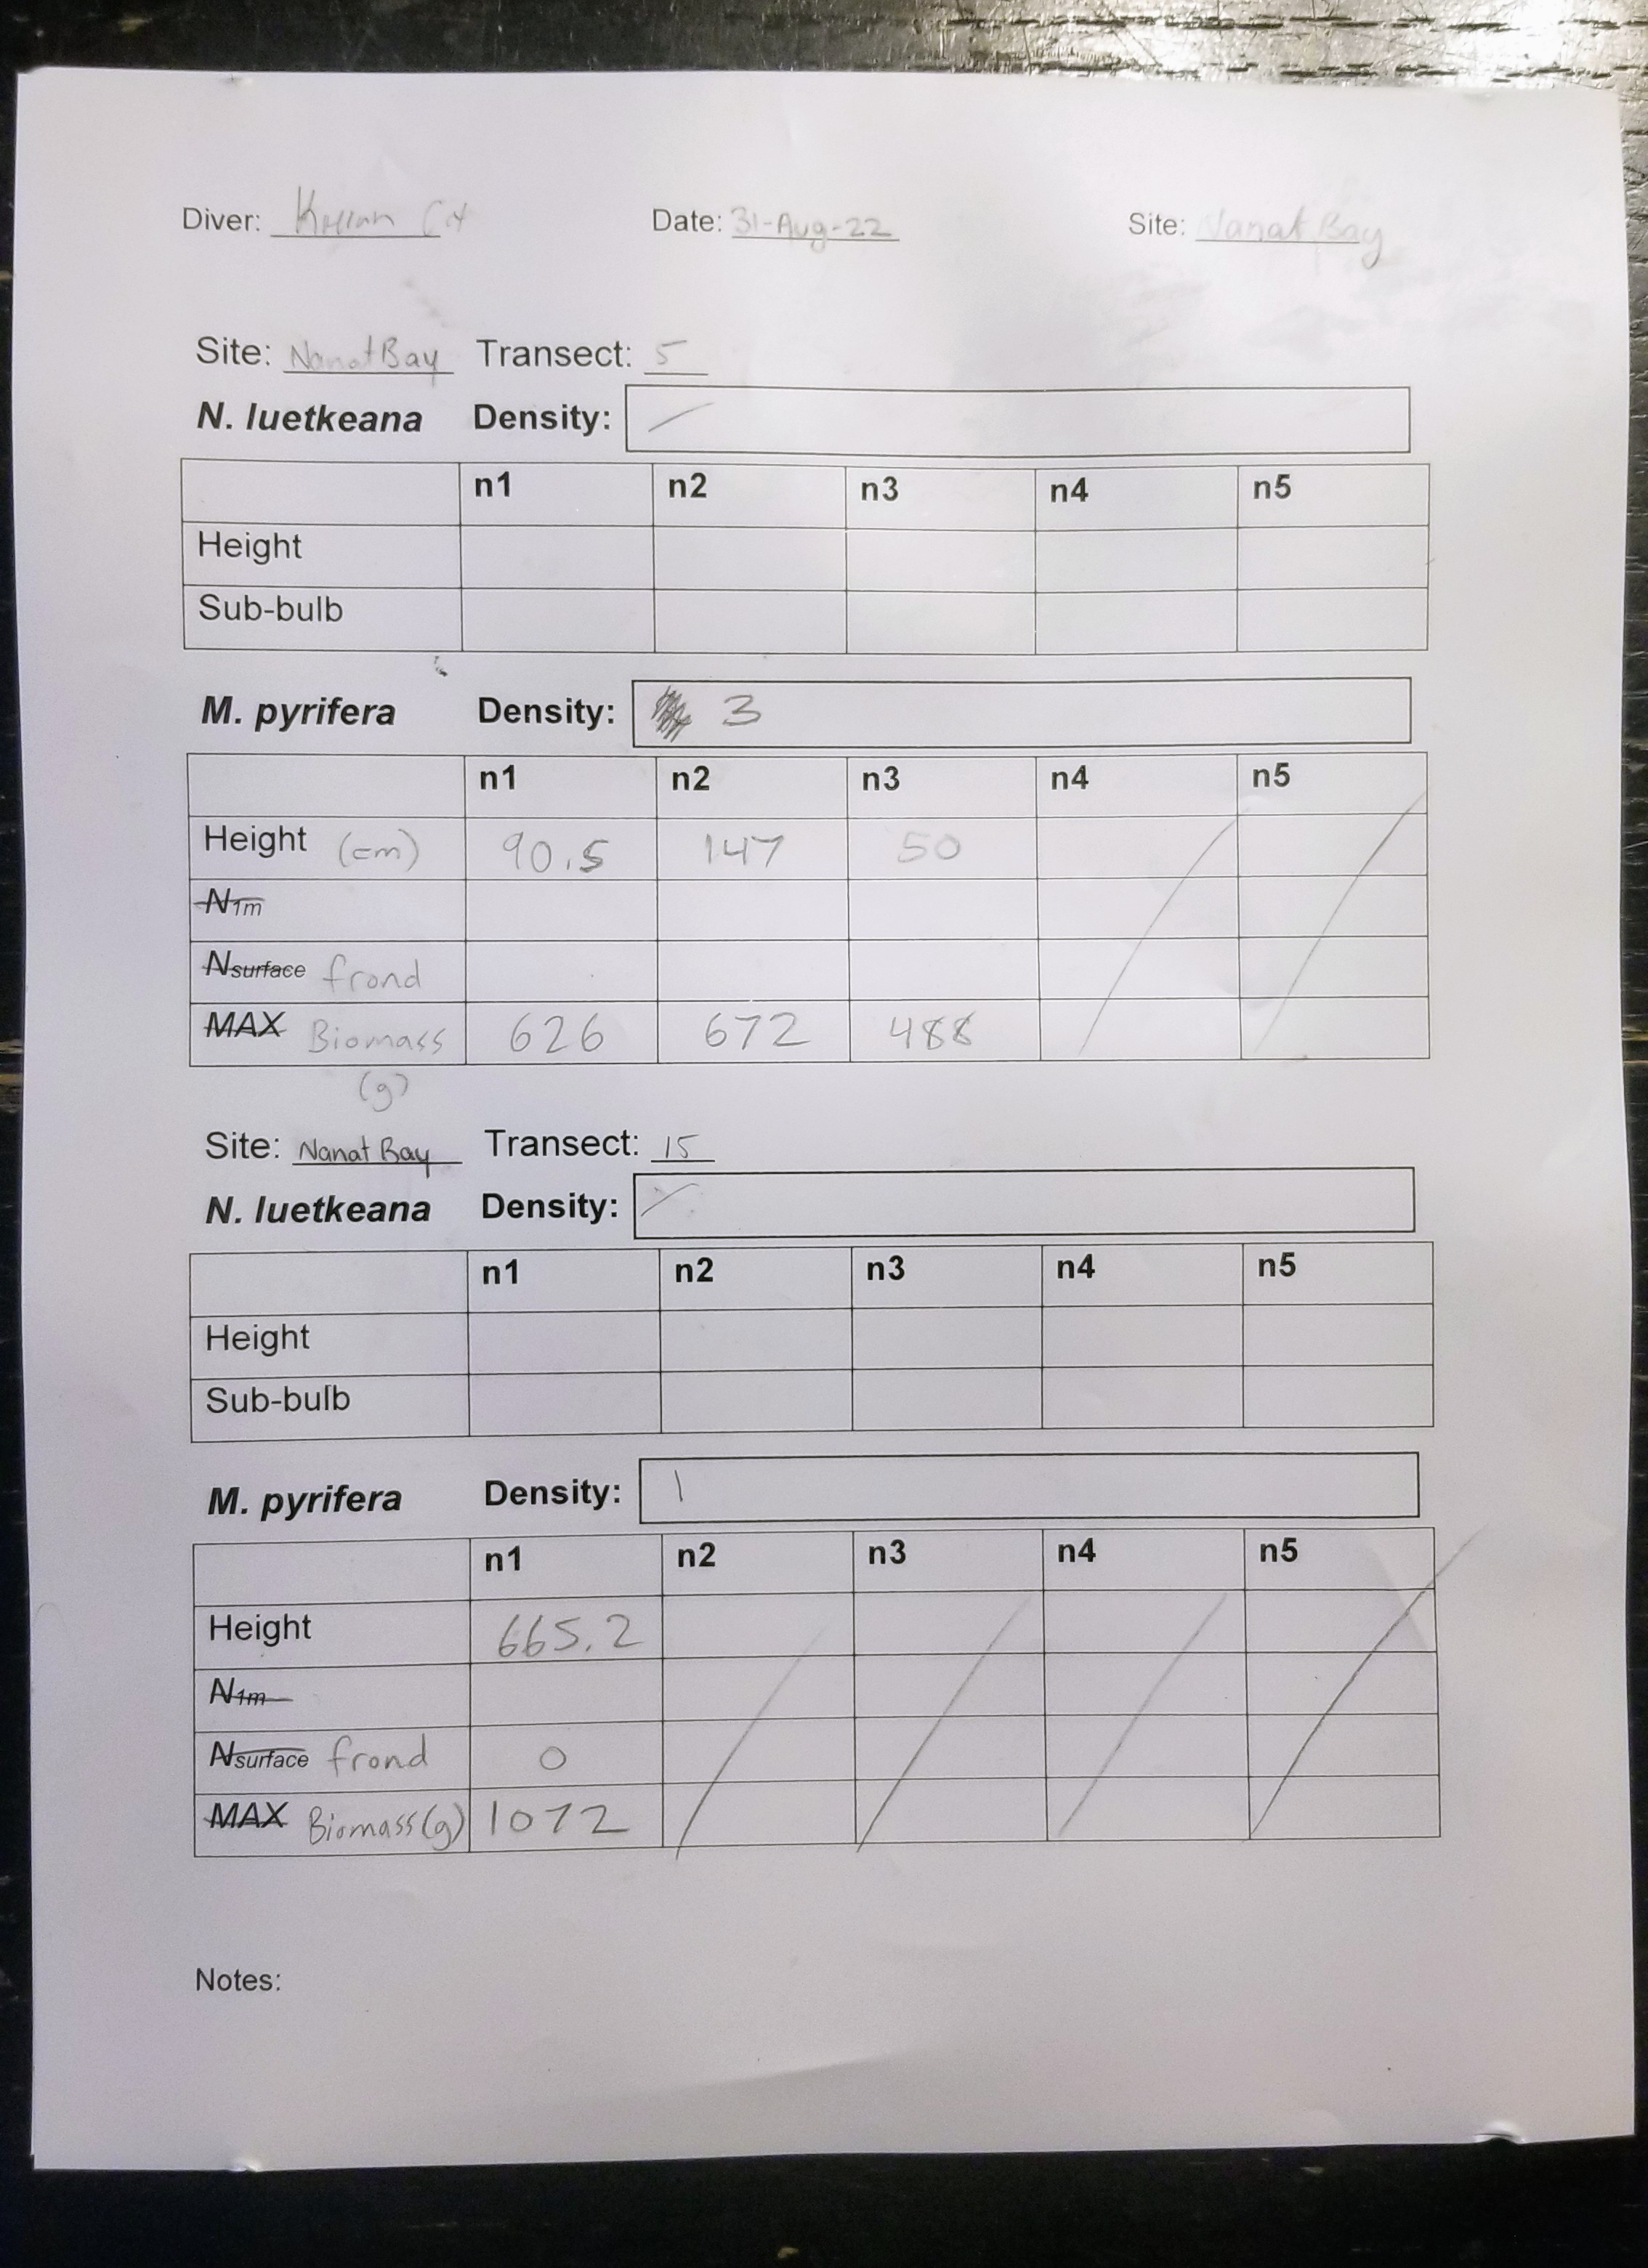 Diver: Date: 31-Aug-22 Site: Nanat Bay
Site: Nanat Bay Transect: 5
N. luetkeana Density: /
n1 n2 n3 n4 n5
Height
Sub-bulb
M. pyrifera Density: 3
n1 n2 n3 n4 n5
Height (cm) 90.5 147 50
N1m
Nsurface frond
MAX Biomass 626 672 488
(g)
Site: Nanat Bay Transect: 15
N. luetkeana Density: /
n1 n2 n3 n4 n5
Height
Sub-bulb
M. pyrifera Density: 1
n1 n2 n3 n4 n5
Height 665.2
N1m
Nsurface frond 0
MAX Biomass (g) 1072
Notes: